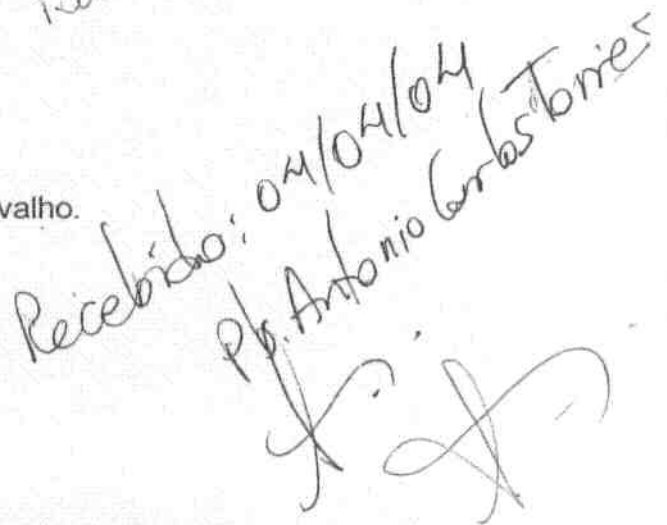 valho.
Recebido: 04/04/04
Pb. Antonio Carlos Torres